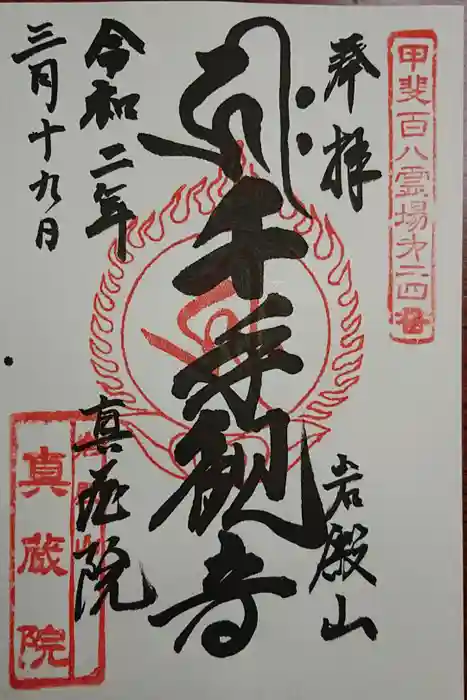 甲斐百八霊場第二四番
奉拝
岩殿山
千手観音
令和二年
三月十九日
真蔵院
真蔵院